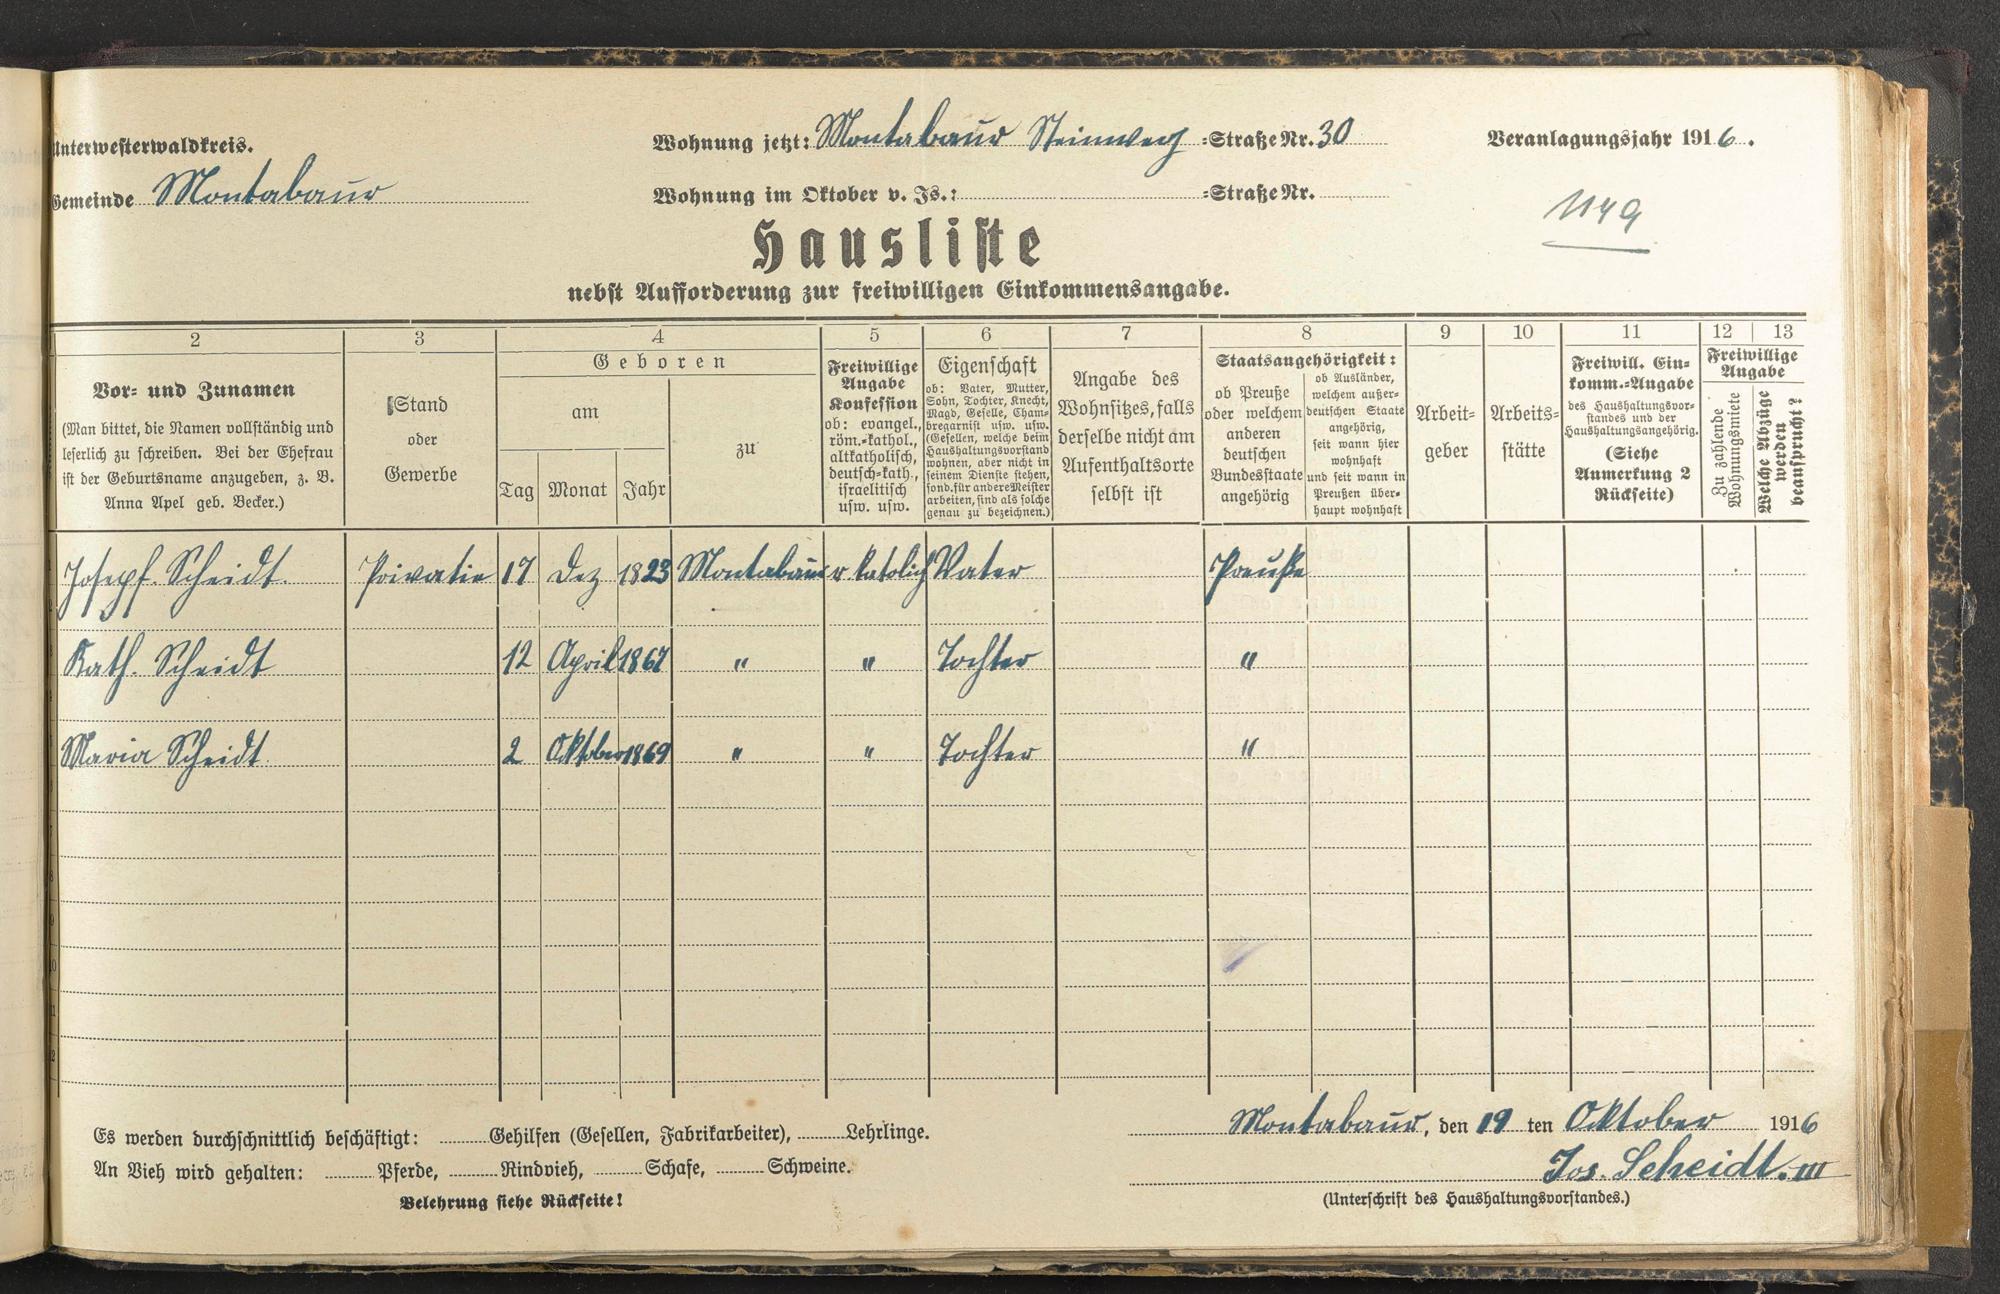 Unterwesterwaldkreis.
Gemeinde Montabaur
Wohnung jetzt: Montabaur Steinweg =Straße Nr. 30
Wohnung im Oktober v. Js.: =Straße Nr.
Veranlagungsjahr 1916.
1149
Hausliste
nebst Aufforderung zur freiwilligen Einkommensangabe.
2 3 4 5 6 7 8 9 10 11 12 13
Vor- und Zunamen
(Man bittet, die Namen vollständig und
leserlich zu schreiben. Bei der Ehefrau
ist der Geburtsname anzugeben, z. B.
Anna Apel geb. Becker.)
Stand
oder
Gewerbe
Geboren
am
Tag Monat Jahr
zu
Freiwillige
Angabe
Konfession
ob: evangel.,
röm.-kathol.,
altkatholisch,
deutsch-kath.,
israelitisch
usw. usw.
Eigenschaft
ob: Vater, Mutter,
Sohn, Tochter, Knecht,
Magd, Geselle, Cham-
bregarnist usw. usw.
(Gesellen, welche beim
Haushaltungsvorstand
wohnen, aber nicht in
seinem Dienste stehen,
sond. für andere Meister
arbeiten, sind als solche
genau zu bezeichnen.)
Angabe des
Wohnsitzes, falls
derselbe nicht am
Aufenthaltsorte
selbst ist
Staatsangehörigkeit:
ob Preuße
oder welchem
anderen
deutschen
Bundesstaate
angehörig
ob Ausländer,
welchem außer-
deutschen Staate
angehörig,
seit wann hier
wohnhaft
und seit wann in
Preußen über-
haupt wohnhaft
Arbeit-
geber
Arbeits-
stätte
Freiwill. Ein-
komm.-Angabe
des Haushaltungsvor-
standes und der
Haushaltungsangehörig.
(Siehe
Anmerkung 2
Rückseite)
Freiwillige
Angabe
Zu zahlende
Wohnungsmiete
Welche Abzüge
werden
beansprucht?
Josepf. Scheidt. Privatie 17 Dez 1823 Montabaur katolich Vater Preuße
Kath. Scheidt 12 April 1867 " " Tochter "
Maria Scheidt 2 Oktober 1869 " " Tochter "
Es werden durchschnittlich beschäftigt: Gehilfen (Gesellen, Fabrikarbeiter), Lehrlinge.
An Vieh wird gehalten: Pferde, Rindvieh, Schafe, Schweine.
Belehrung siehe Rückseite!
Montabaur, den 19 ten Oktober 1916
Jos. Scheidt. III
(Unterschrift des Haushaltungsvorstandes.)